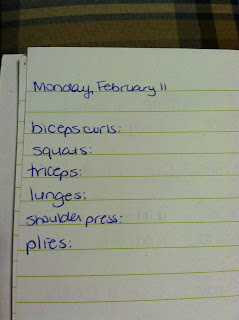 Monday, February 11
biceps curls:
squats:
triceps:
lunges:
shoulder press:
plies: